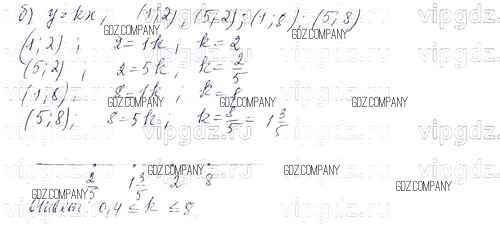 б) y = kx, (1; 2); (5; 2); (1; 8); (5; 8)
GDZ.COMPANY
(1; 2); 2 = 1k; k = 2
(5; 2); 2 = 5k; k = 2/5
(1; 8); 8 = 1k; k = 8
GDZ.COMPANY GDZ.COMPANY GDZ.COMPANY
(5; 8); 8 = 5k; k = 8/5 = 1 3/5
2/5 1 3/5 2 8
GDZ.COMPANY GDZ.COMPANY GDZ.COMPANY
GDZ.COMPANY GDZ.COMPANY
Ответ: 0,4 ≤ k ≤ 8
vipgdz.ru